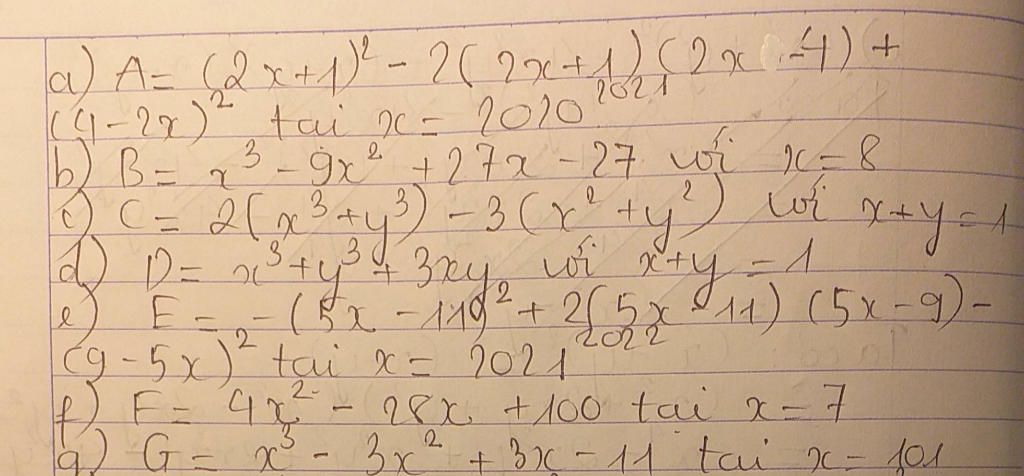 a) A = (2x+1)² - 2(2x+1)(2x-4) +
(4-2x)² tại x = 2020²⁰²¹
b) B = x³ - 9x² + 27x - 27 với x = 8
c) C = 2(x³+y³) - 3(x²+y²) với x+y = 1
d) D = x³+y³+3xy với x+y = 1
e) E = -(5x - 11)² + 2(5x - 11)(5x - 9) -
(9-5x)² tại x = 2021²⁰²²
f) F = 4x² - 28x + 100 tại x = 7
g) G = x³ - 3x² + 3x - 11 tại x = 101